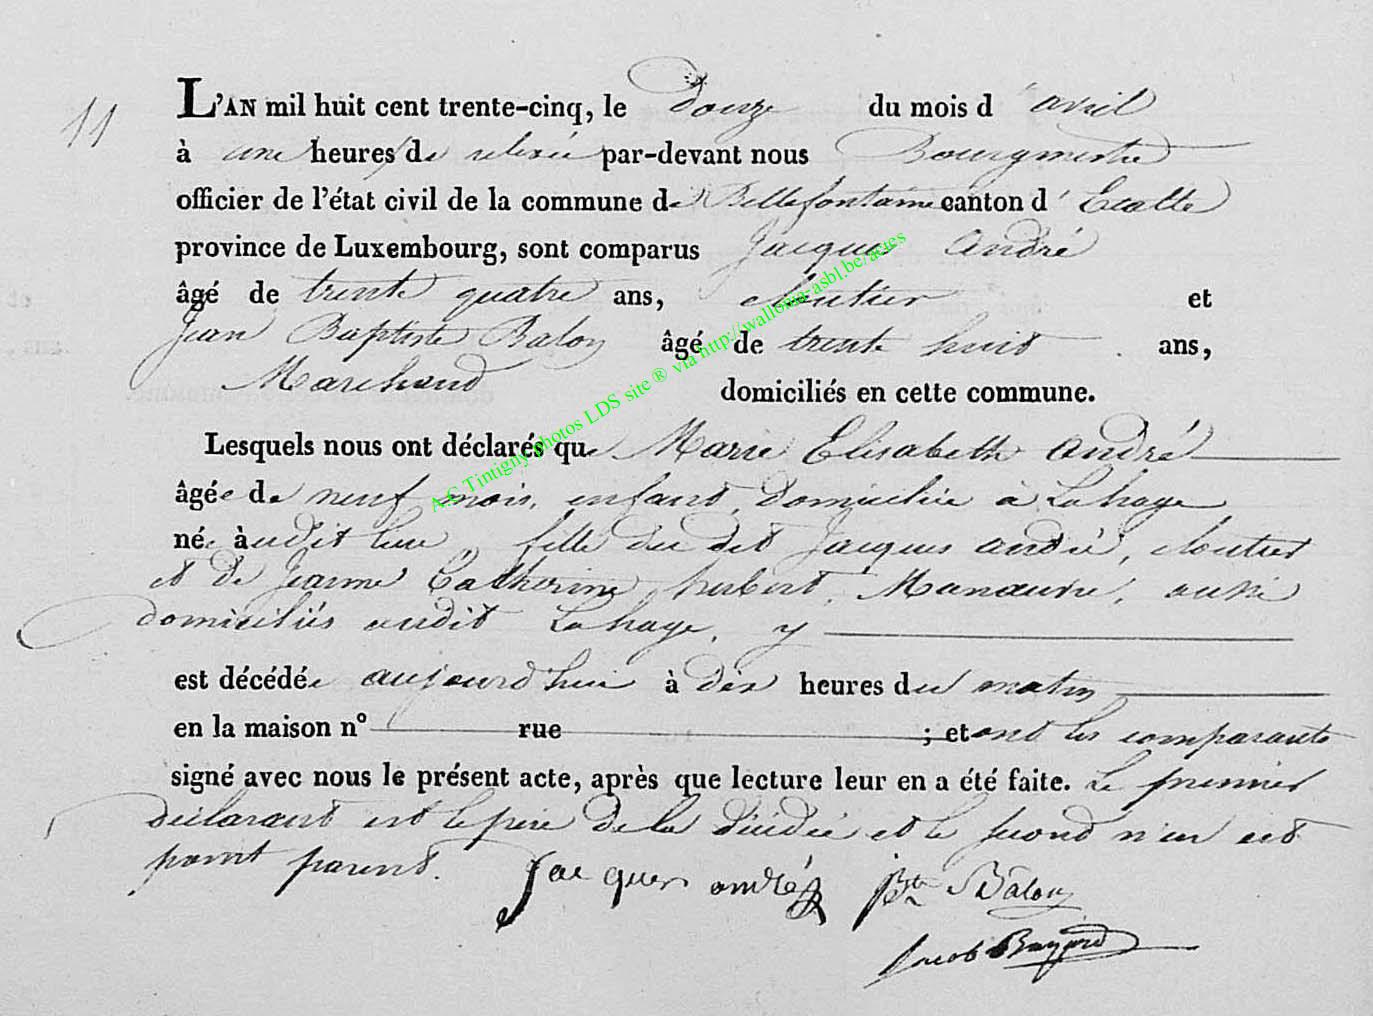 11
L'AN mil huit cent trente-cinq, le douze du mois d'avril
à une heures de relevée par-devant nous Bourgmestre
officier de l'état civil de la commune de Bellefontaine canton d'Etalle
province de Luxembourg, sont comparus Jacques André
âgé de trente quatre ans, cloutier et
Jean Baptiste Balon âgé de trente huit ans,
Marchand domiciliés en cette commune.
Lesquels nous ont déclarés que Marie Elisabeth André
âgée de neuf mois, enfant, domiciliée à Lahage
née audit lieu, fille du dit Jacques André, cloutier
et de Jeanne Catherine hubert, Manœuvre, aussi
domiciliés audit Lahage, y
est décédée aujourd'hui à dix heures du matin
en la maison n° rue ; et ont les comparants
signé avec nous le présent acte, après que lecture leur en a été faite. Le premier
déclarant est le père de la décédée et le second n'en est
point parent. Jacques andré jbte Balon
Jacob Bayard
A.C Tintigny photos LDS site ® via http://wallonia-asbl.be/actes